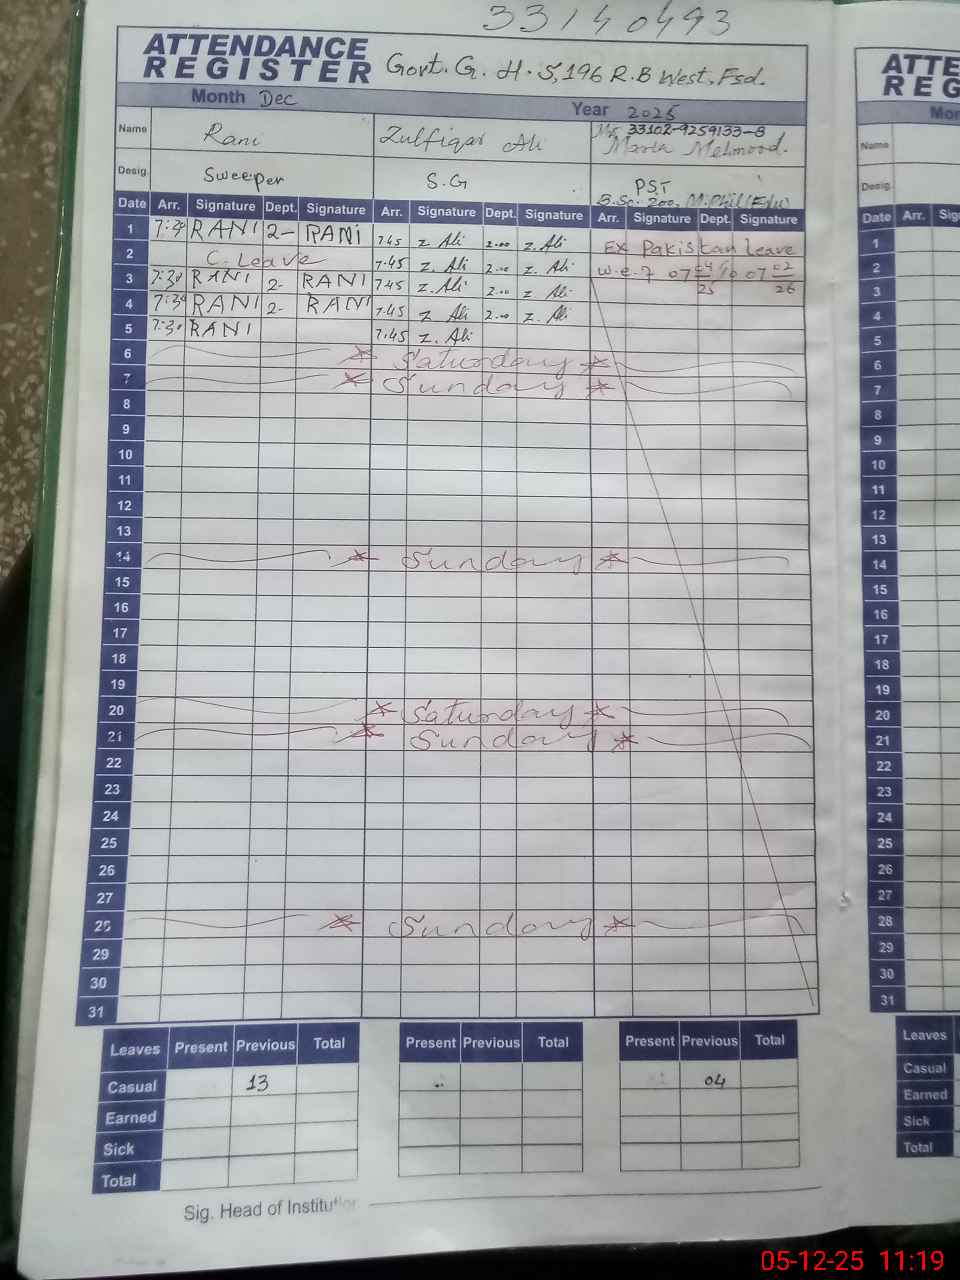 33140493
ATTENDANCE
REGISTER Govt. G. H. S, 196 R.B West, Fsd.
Month Dec Year 2025
Name Rani Zulfiqar Ali 33102-9259133-8
Maria Mehmood.
Desig. Sweeper S.G PST
B.Sc. 200, M.Phil (Edu)
Date Arr. Signature Dept. Signature Arr. Signature Dept. Signature Arr. Signature Dept. Signature
1 7:30 RANI 2- RANI 7.45 Z. Ali 2.00 Z. Ali Ex Pakistan leave
2 C. Leave 7.45 Z. Ali 2.00 Z. Ali w.e.f 07 04/25 to 07 02/26
3 7:30 RANI 2- RANI 7.45 Z. Ali 2.00 Z. Ali
4 7:30 RANI 2- RANI 7.45 Z Ali 2.00 Z. Ali
5 7:30 RANI 7.45 Z. Ali
6 * Saturday *
7 * Sunday *
8
9
10
11
12
13
14 * Sunday *
15
16
17
18
19
20 * Saturday *
21 * Sunday *
22
23
24
25
26
27
28 * Sunday *
29
30
31
Leaves Present Previous Total Present Previous Total Present Previous Total
Casual 13 04
Earned
Sick
Total
Sig. Head of Institution
ATTE
REG
Mon
Name
Desig.
Date Arr. Sig
1
2
3
4
5
6
7
8
9
10
11
12
13
14
15
16
17
18
19
20
21
22
23
24
25
26
27
28
29
30
31
Leaves
Casual
Earned
Sick
Total
05-12-25 11:19